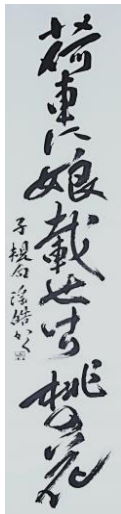 荷車に娘載せけり桃の花
子規句 渓皓かく